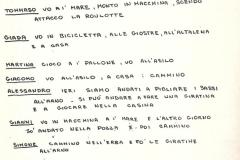 TOMMASO VO AL' MARE, MONTO IN MACCHINA, SCENDO
ATTACCO LA ROULOTTE
GIADA VO IN BICICLETTA, ALLE GIOSTRE, ALL'ALTALENA
E A CASA
MARTINA GIOCO A PALLONE, VO ALL'ASILO
GIACOMO VO ALL'ASILO, A CASA: CAMMINO
ALESSANDRO IERI SIAMO ANDATI A PIGLIARE I SASSI
ALL'ARNO. SI PUÒ ANDARE A FARE UNA GIRATINA
E A GIOCARE NELLA CASINA
GIANNI VO IN MACCHINA A I' MARE E L'ALTRO GIORNO
SO' ANDATO NELLA POZZA E POI CAMMINO
SIMONE CAMMINO NELL'ERBA E FO' LE GIRATINE
ALL'ARNO